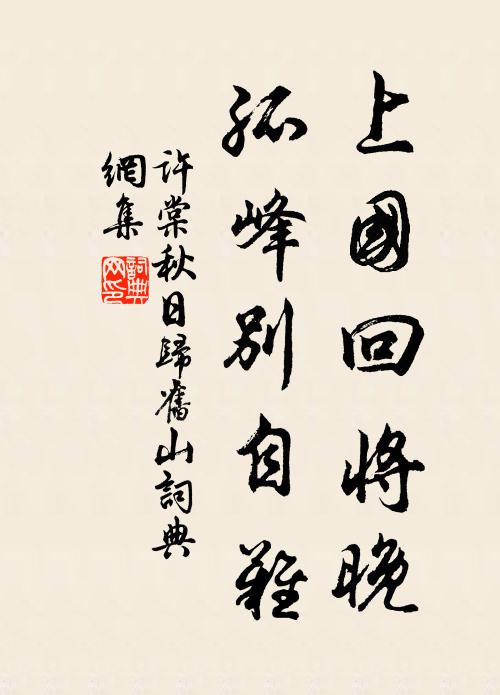 上國回將晚
孤峰別自難
許棠秋日歸舊山詞典
網集
詞典
網印